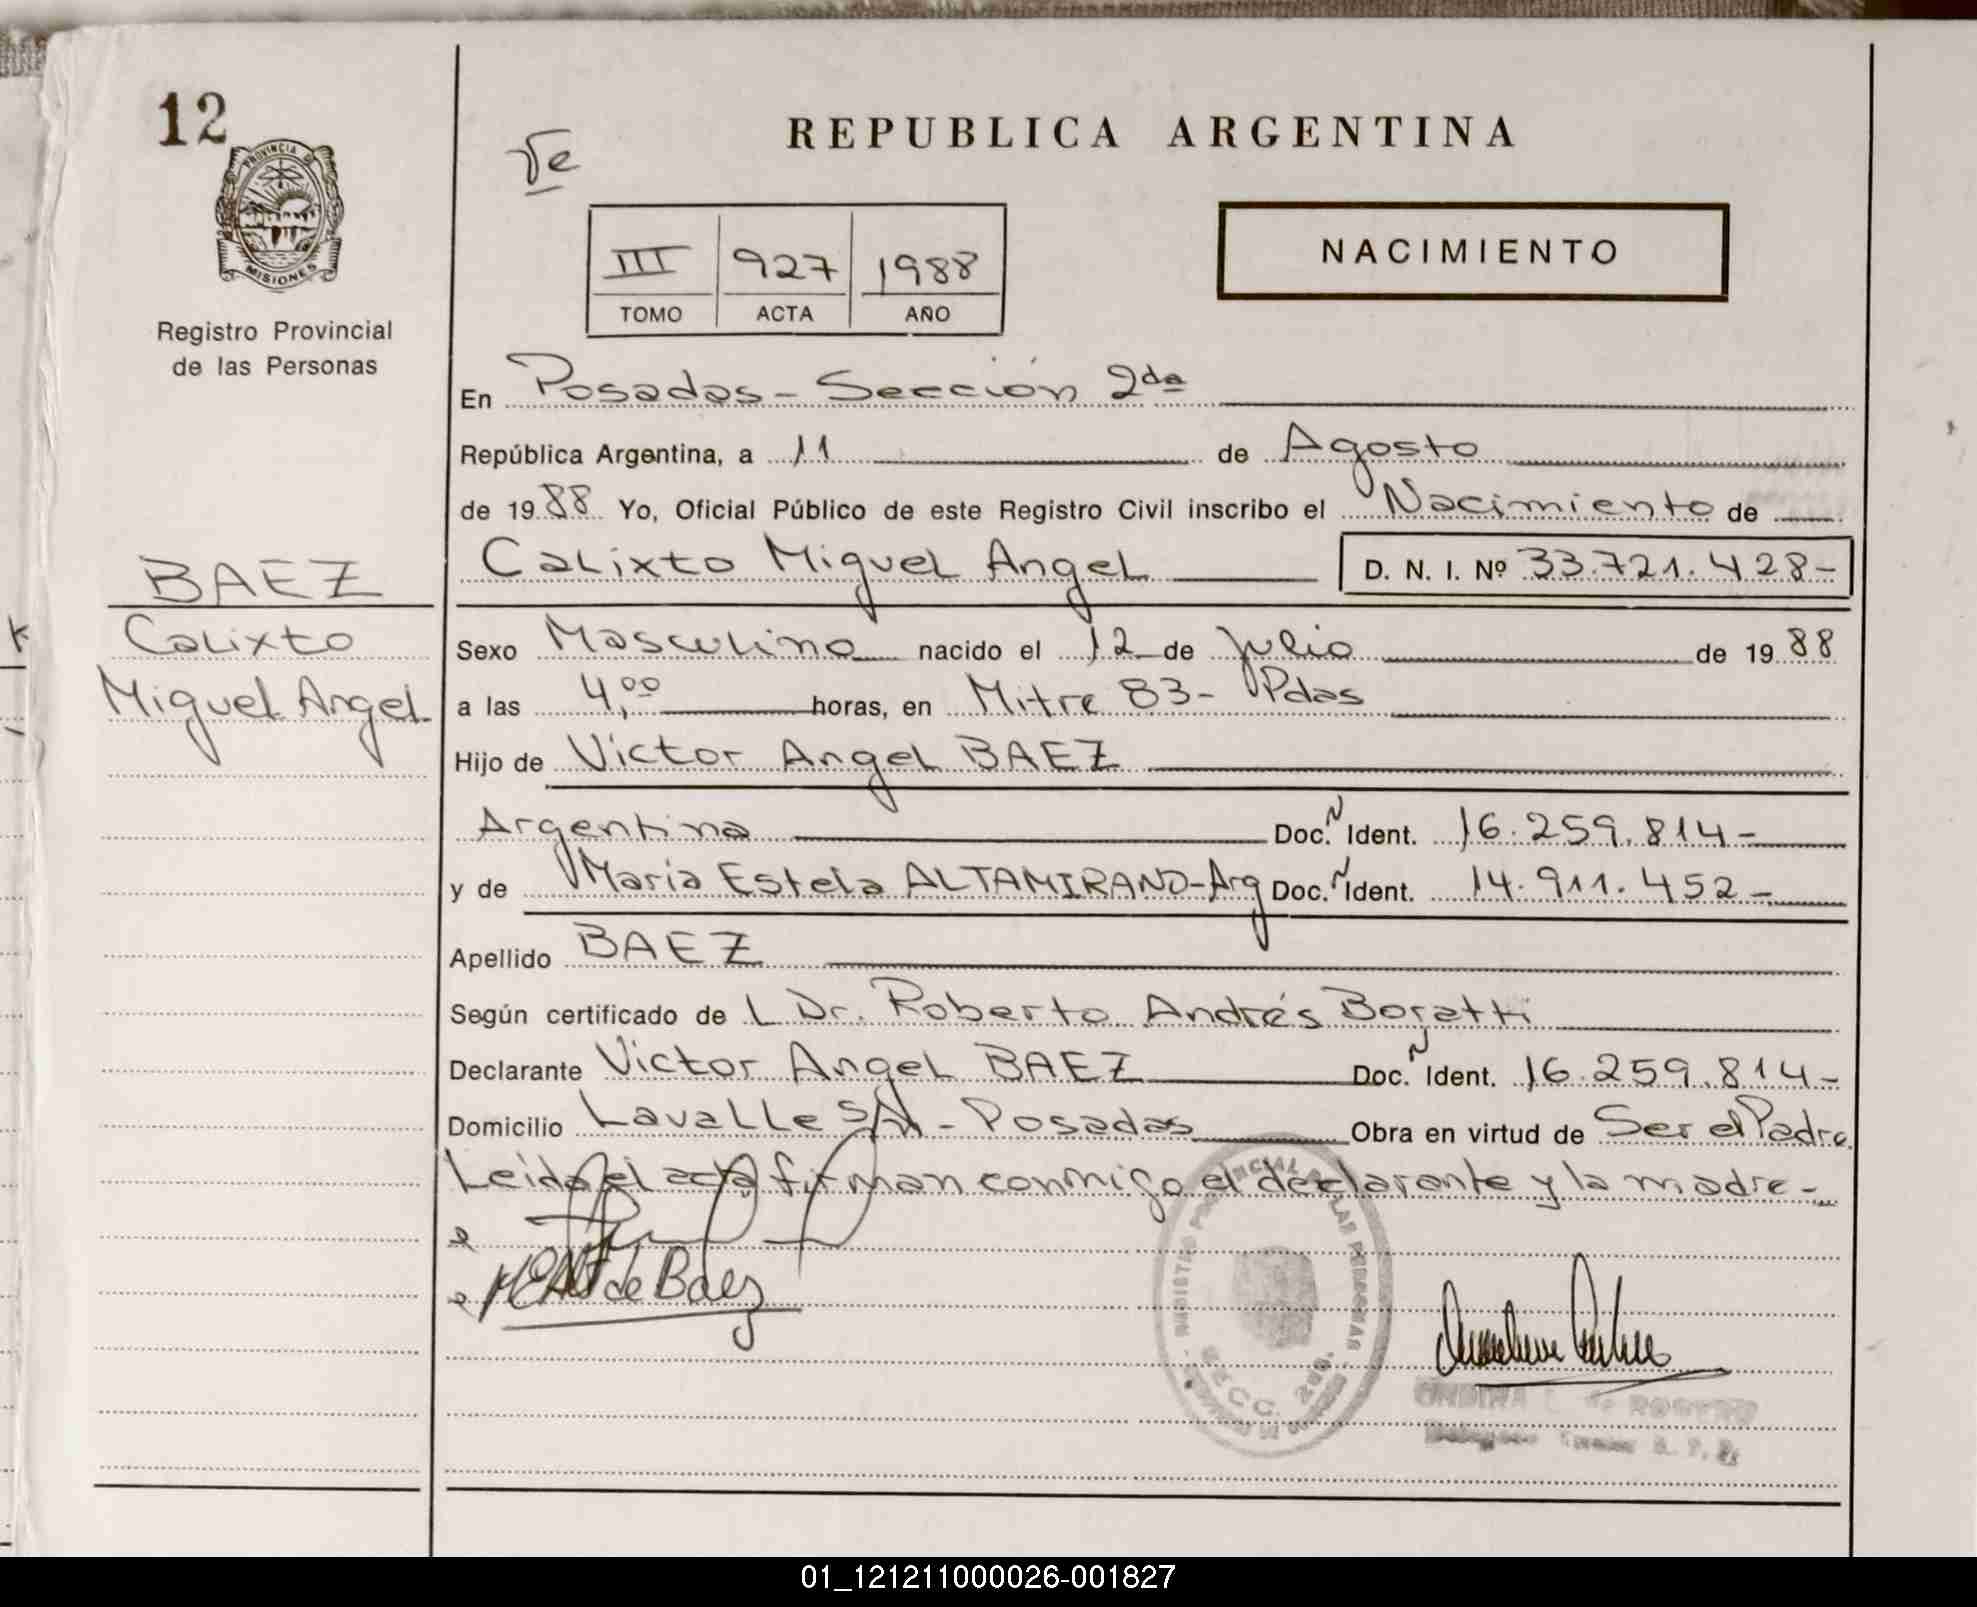 12
PROVINCIA DE
MISIONES
Registro Provincial
de las Personas
REPUBLICA ARGENTINA
III 927 1988
TOMO ACTA AÑO
NACIMIENTO
En Posadas - Sección 2da
República Argentina, a 11 de Agosto
de 1988 Yo, Oficial Público de este Registro Civil inscribo el Nacimiento de
BAEZ
Calixto
Miguel Angel
Calixto Miguel Angel D. N. I. Nº 33.721.428-
Sexo Masculino nacido el 12 de Julio de 1988
a las 4,00 horas, en Mitre 83- Pdas
Hijo de Victor Angel BAEZ
Argentina Doc. N Ident. 16.259.814-
y de María Estela ALTAMIRANO-Arg Doc. N Ident. 14.911.452-
Apellido BAEZ
Según certificado de L Dr. Roberto Andrés Boratti
Declarante Victor Angel BAEZ Doc. N Ident. 16.259.814-
Domicilio Lavalle S/N - Posadas Obra en virtud de Ser el Padre
Leida el acta firman conmigo el declarante y la madre-
de Baez
REGISTRO PROVINCIAL DE LAS PERSONAS
SECC. 2da.
01_121211000026-001827